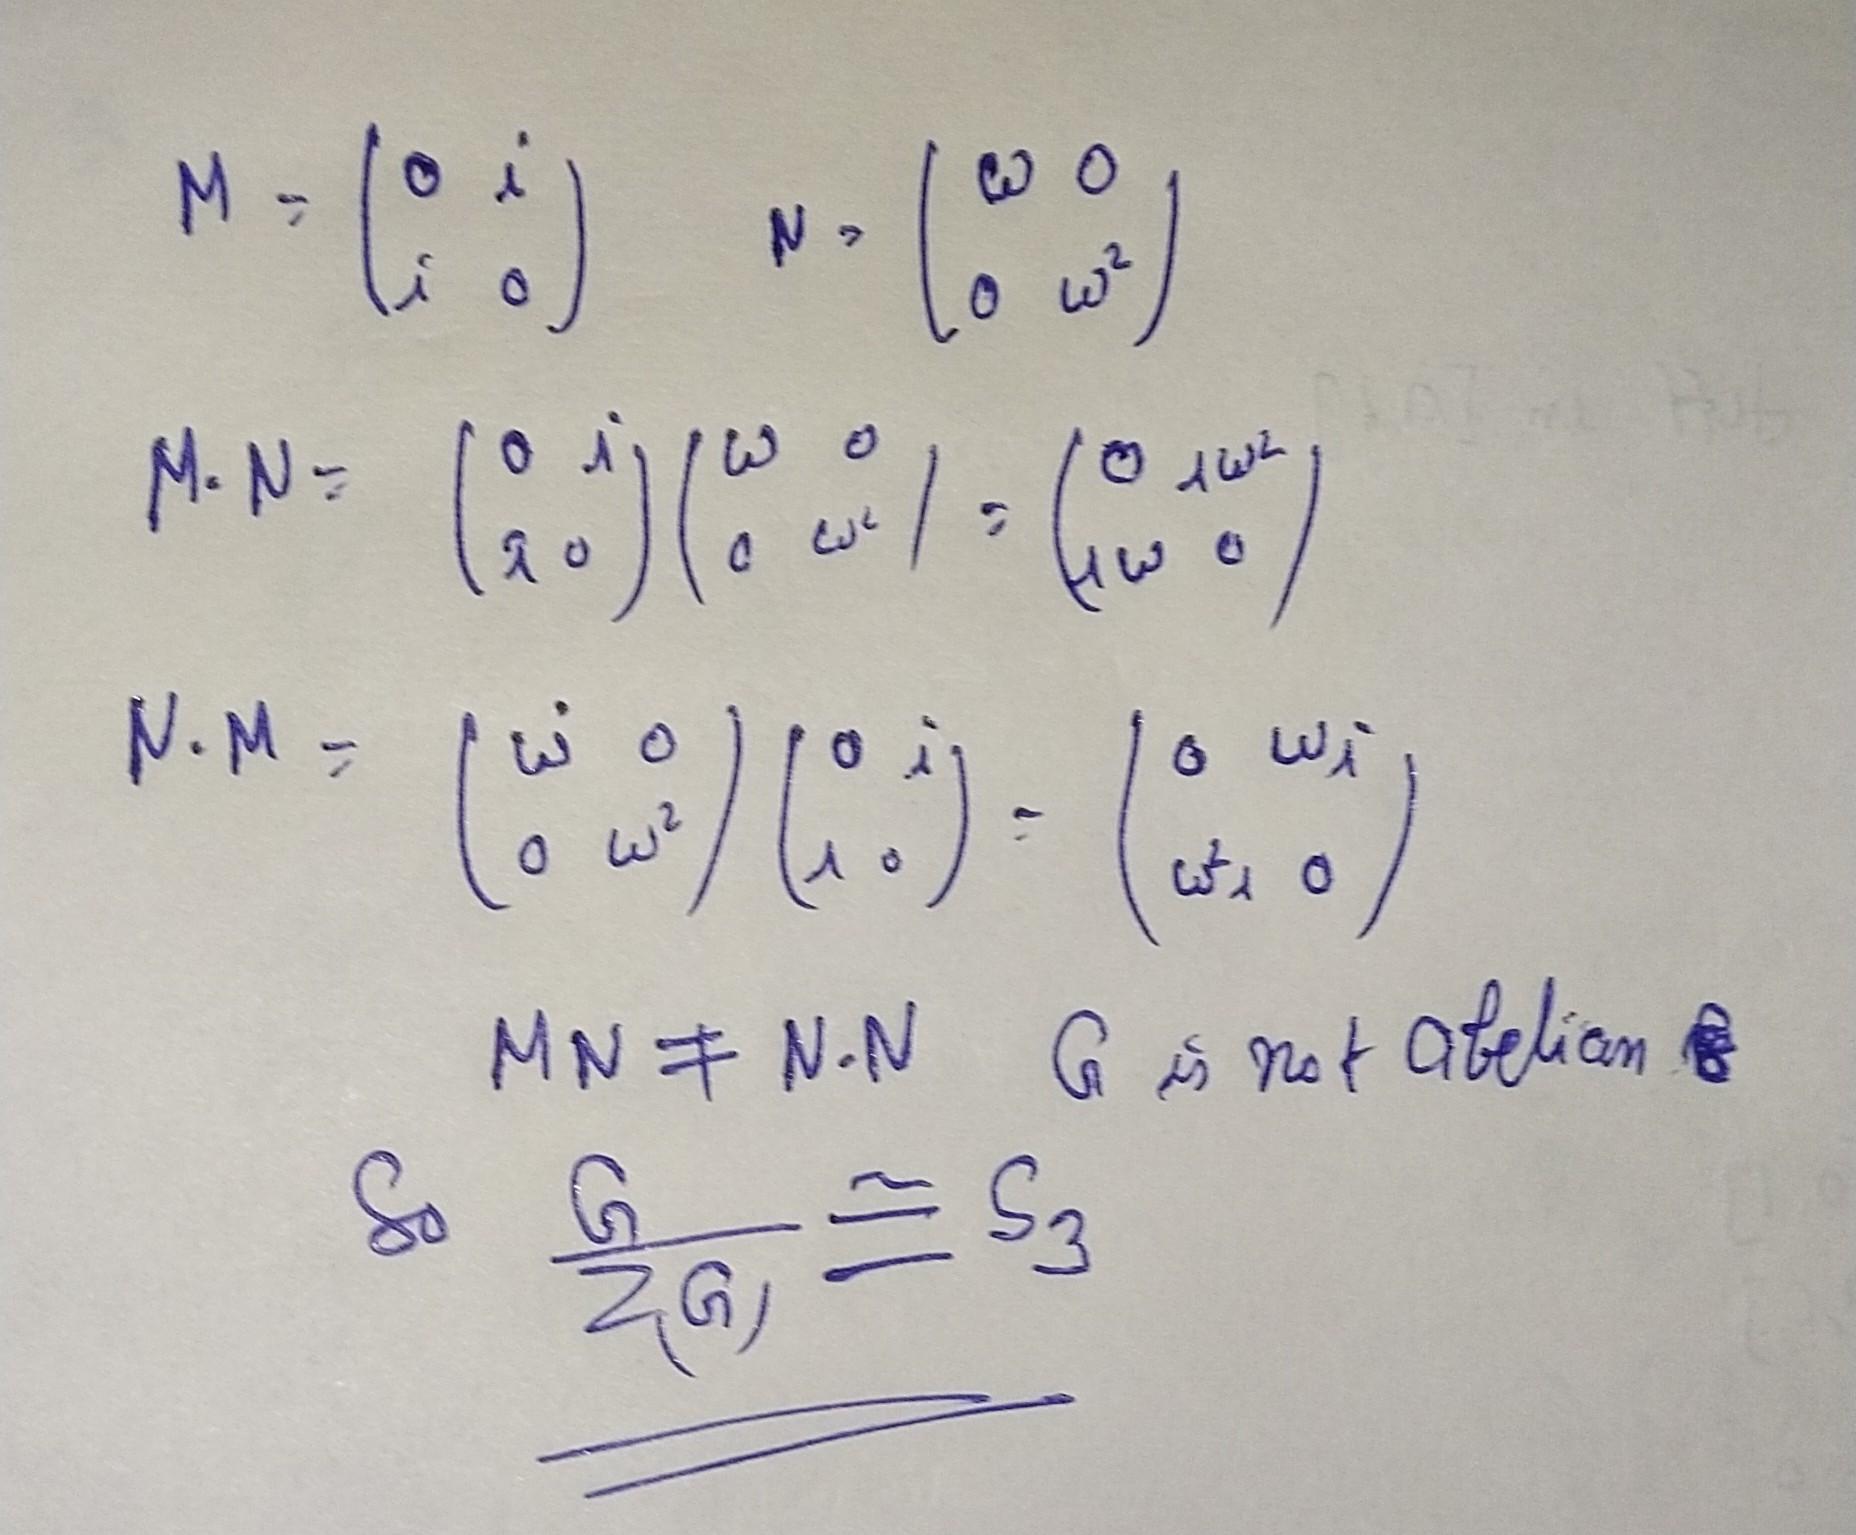 M = (0 i; i 0) N = (ω 0; 0 ω²)
M.N = (0 i; i 0)(ω 0; 0 ω²) = (0 iω²; iω 0)
N.M = (ω 0; 0 ω²)(0 i; i 0) = (0 ωi; ω²i 0)
MN ≠ N.N G is not abelian
So G/Z(G) ≅ S₃